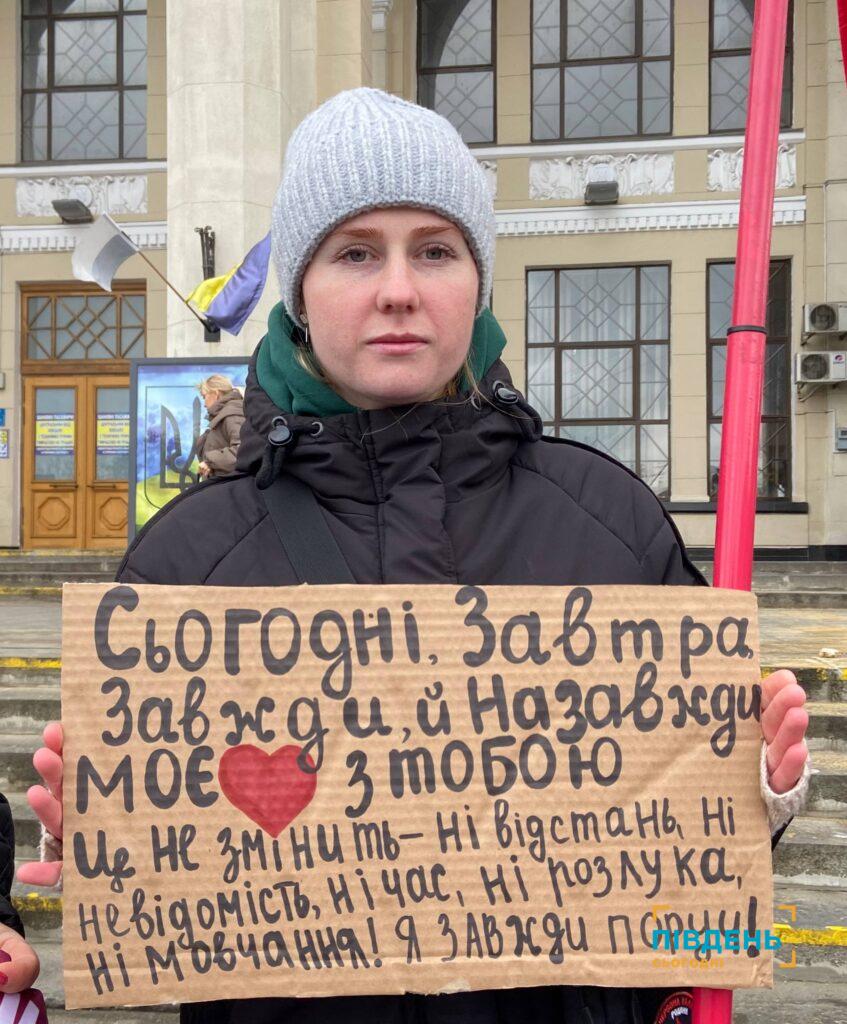 Сьогодні, Завтра,
Завжди, й Назавжди
моє ❤ з тобою
Це не змінить – ні відстань, ні
невідомість, ні час, ні розлука,
ні мовчання! Я завжди поруч!
ПІВДЕНЬ
СЬОГОДНІ